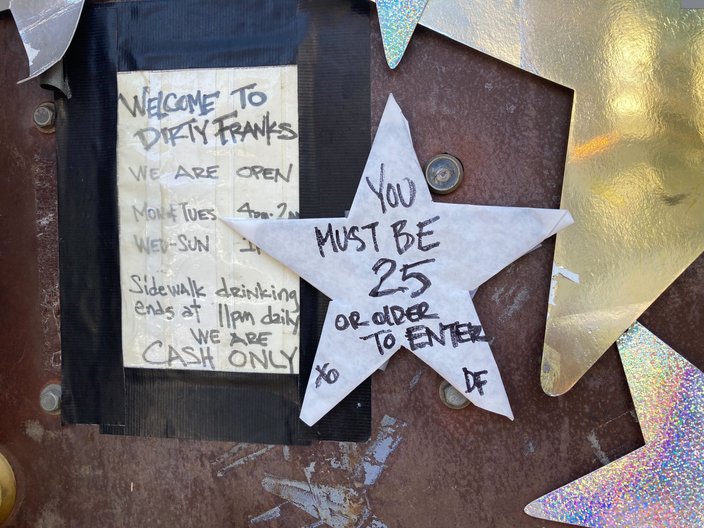 WELCOME TO
DIRTY FRANKS
WE ARE OPEN
MON & TUES 4PM-2
WED-SUN
Sidewalk drinking
ends at 11pm daily
WE ARE
CASH ONLY
YOU
MUST BE
25
OR OLDER
TO ENTER
XO
DF